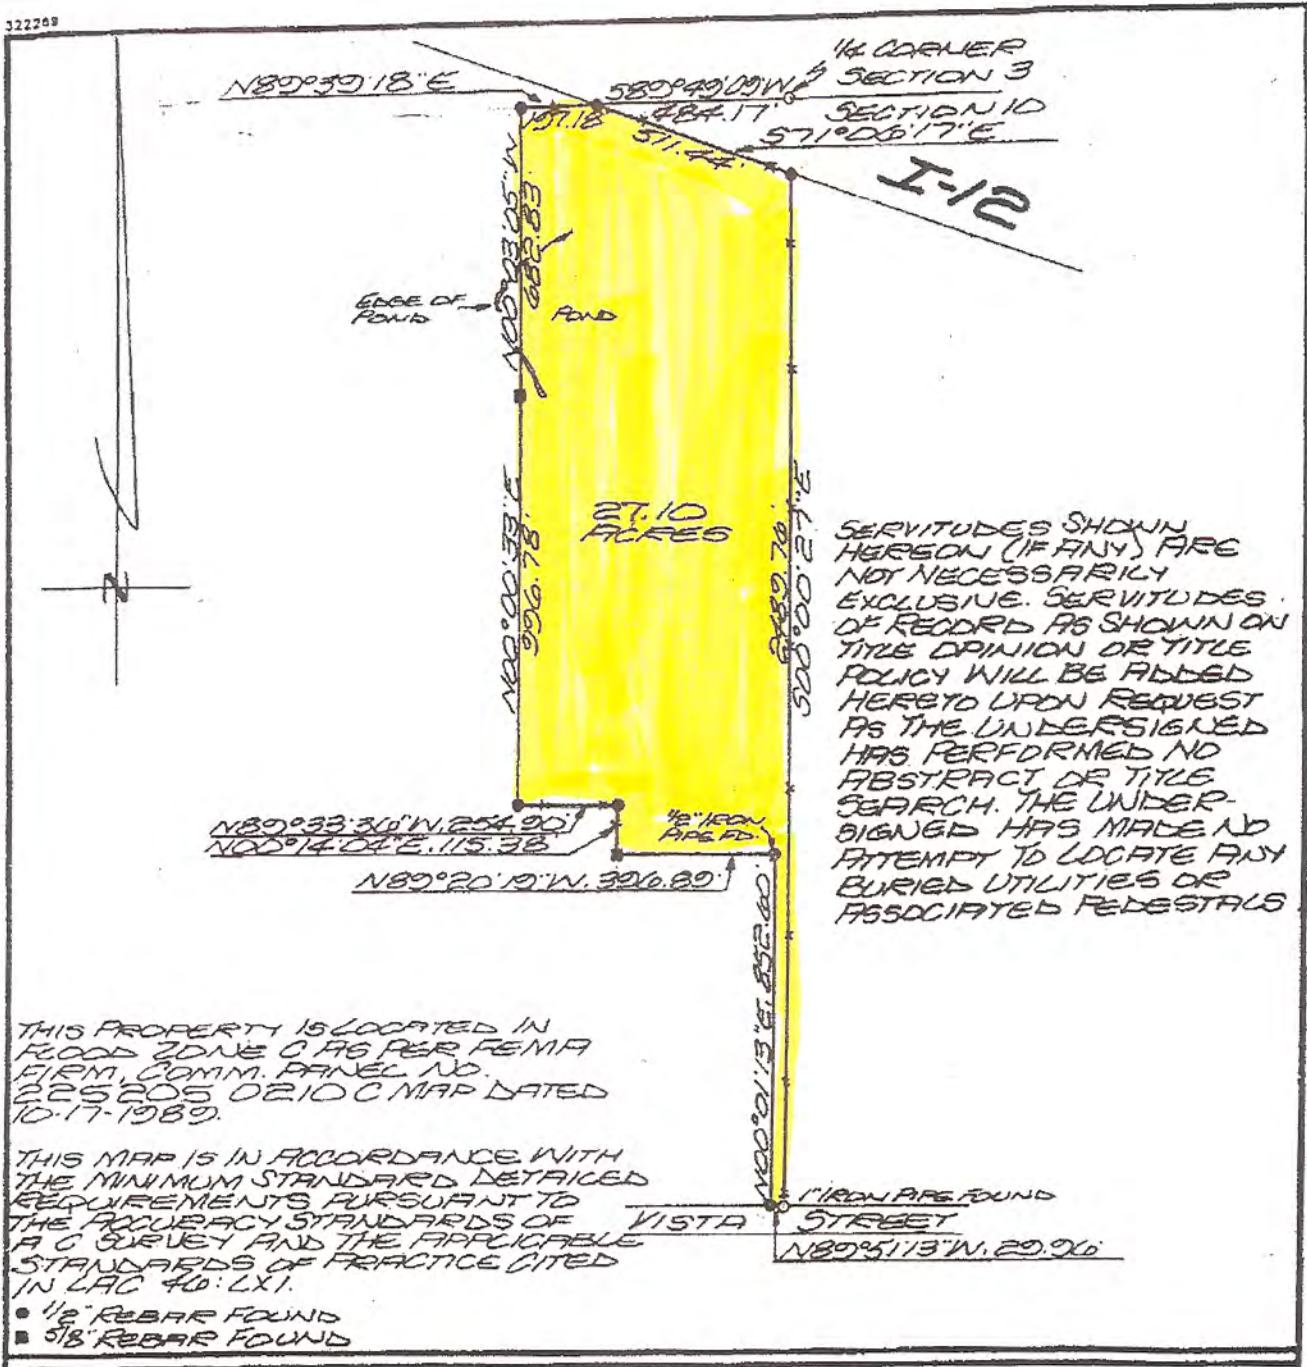 322269
N89°39'18"E
S89°49'09"W
1/4 CORNER
SECTION 3
484.17'
SECTION 10
197.18'
511.44'
S71°06'17"E
I-12
N00°03'05"W
682.83'
EDGE OF
POND
POND
27.10
ACRES
N00°00'33"E
996.78'
2489.76'
S00°00'27"E
N
SERVITUDES SHOWN
HEREON (IF ANY) ARE
NOT NECESSARILY
EXCLUSIVE. SERVITUDES
OF RECORD AS SHOWN ON
TITLE OPINION OR TITLE
POLICY WILL BE ADDED
HERETO UPON REQUEST
AS THE UNDERSIGNED
HAS PERFORMED NO
ABSTRACT OR TITLE
SEARCH. THE UNDER-
SIGNED HAS MADE NO
ATTEMPT TO LOCATE ANY
BURIED UTILITIES OR
ASSOCIATED PEDESTALS
N89°33'36"W, 254.90'
N00°14'04"E, 115.38'
1/2" IRON
PIPE FD.
N89°20'19"W, 396.89'
N00°01'13"E, 852.60'
THIS PROPERTY IS LOCATED IN
FLOOD ZONE C AS PER FEMA
FIRM, COMM. PANEL NO.
225205 0210 C MAP DATED
10-17-1989.
THIS MAP IS IN ACCORDANCE WITH
THE MINIMUM STANDARD DETAILED
REQUIREMENTS PURSUANT TO
THE ACCURACY STANDARDS OF
A C SURVEY AND THE APPLICABLE
STANDARDS OF PRACTICE CITED
IN LAC 46: LXI.
1" IRON PIPE FOUND
VISTA STREET
N89°51'13"W, 29.96'
● 1/2" REBAR FOUND
■ 5/8" REBAR FOUND